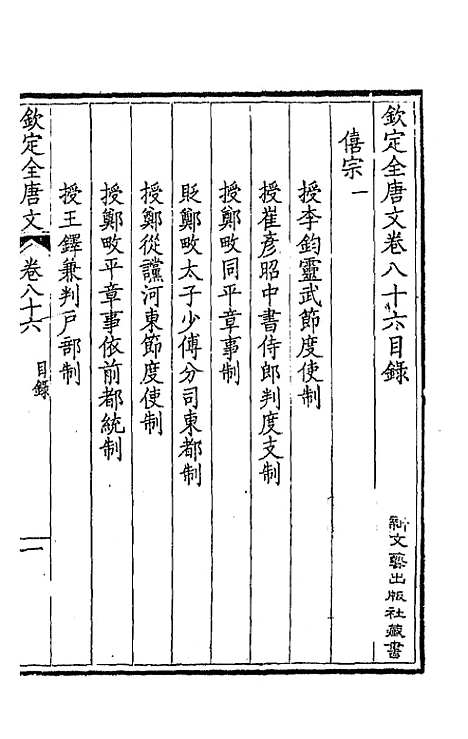 欽定全唐文卷八十六目錄
僖宗一
授李鈞靈武節度使制
授崔彥昭中書侍郎判度支制
授鄭畋同平章事制
貶鄭畋太子少傅分司東都制
授鄭從讜河東節度使制
授鄭畋平章事依前都統制
授王鐸兼判戶部制
欽定全唐文 卷八十六 目錄 一
新文藝出版社藏書